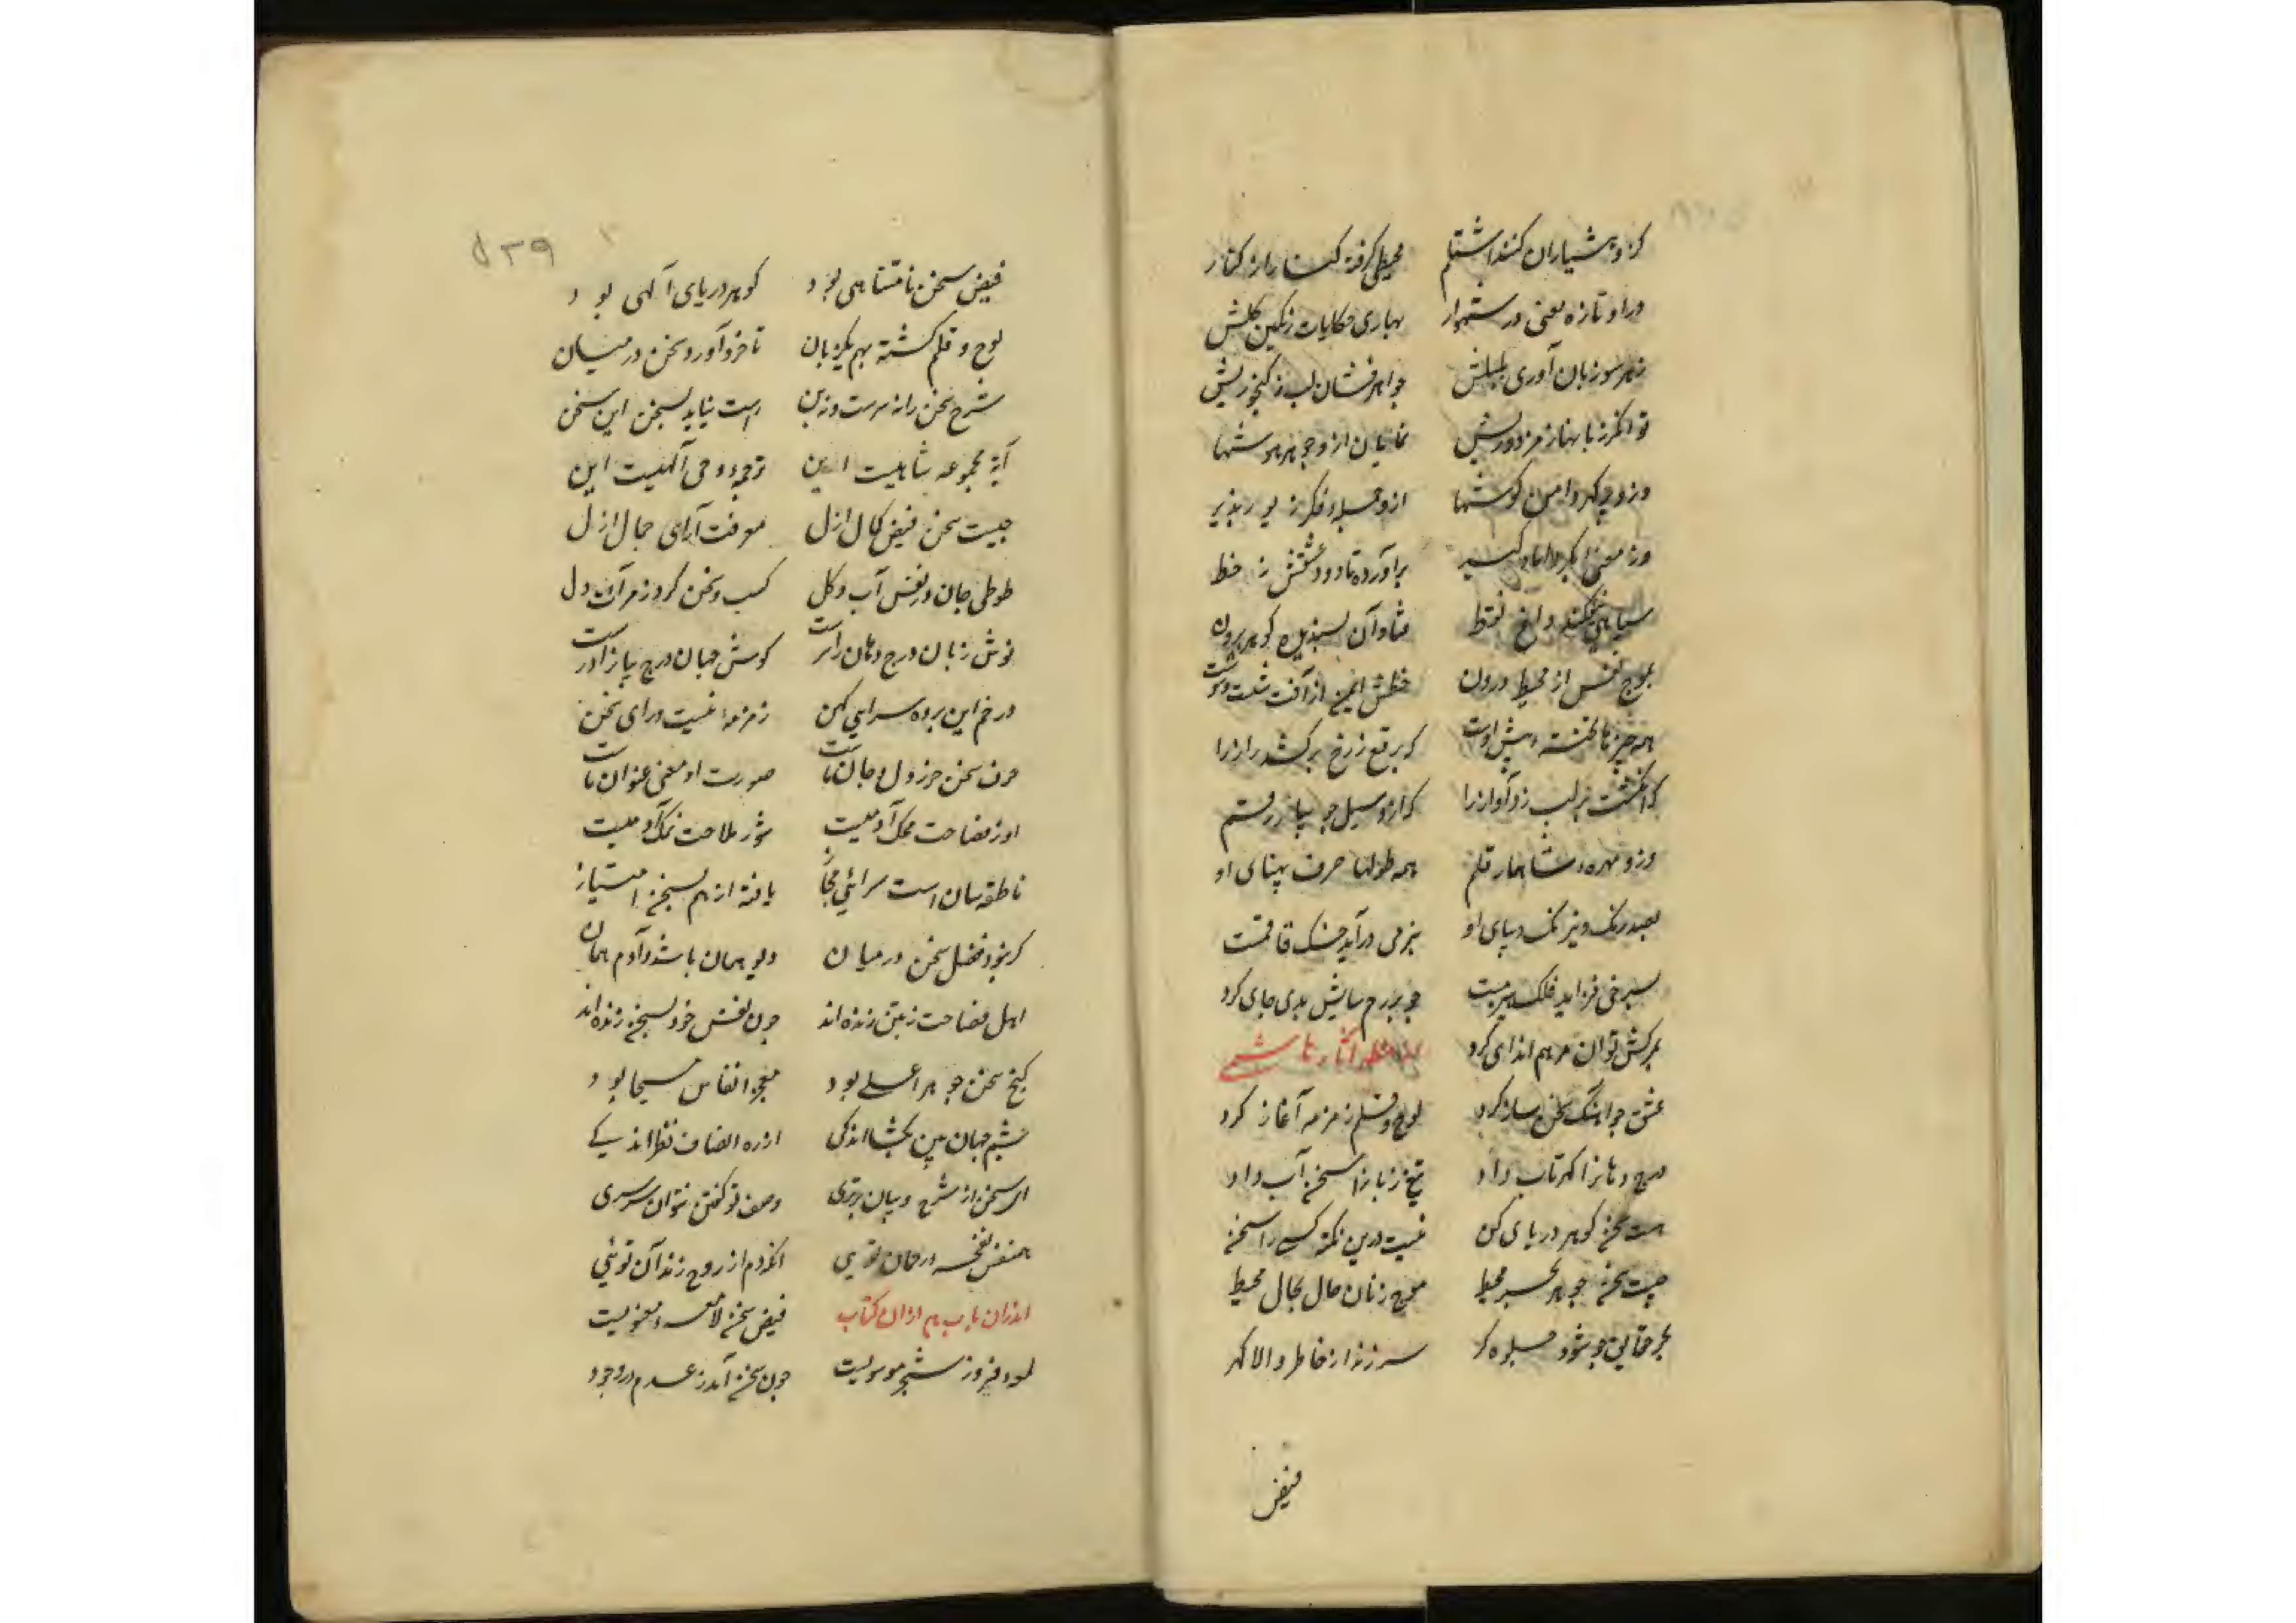 کزو هشیاران کنند اشتلم محیطی گرفته کنار از کنار
در او تازه معنی در شهوار بهاری حکایات رنگین گلش
ز هر سو زبان آوری بلبلش جواهر فشان لب ز گنجوریش
توانگر زبانها ز مزدوریش نمایان ازو جوهر هوشها
وزو پر گهر دامن گوشها ازو حیله فکر زیور پذیر
وز معنی بکر برآورده تا دود عشقش ز خط
سیاهی فکند داغ نقط
بموج نفس از محیط درون خطش ایمن از آفت شست و شوست
همه چیزها گفته پیش اوست که برقع ز رخ برکشد راز را
که انگشت بر لب زد آواز را کزو سیل جو پا رقم
وزو مهره شاهمار قلم همه طولها حرف پهنای او
بصد رنگ و نیرنگ دیبای او بنرمی درآید خسک قاقمت
بسرخی فزاید فلک چو بر رم سایش بدی جای کرد
بمرکش توان مرهم اندای کرد مظهر آثار هاشمی
عشق چو آهنگ سخن ساز کرد لوح و قلم زمزمه آغاز کرد
درج دهانرا گهر تاب داد تیغ زبانرا سخن آب داد
هست سخن گوهر دریای کن نیست درین نکته کسی را سخن
چیست سخن جوهر بحر محیط موج زنان حال بحال محیط
بحر حقایق چو شود جلوه گر سر زند از خاطر والا گهر
فیض
۵۳۹
فیض سخن نامتناهی بود گوهر دریای الهی بود
لوح و قلم گشته بهم یکزبان تا خرد آورد سخن در میان
شرح سخن را نه سرست و نه بن راست نیاید بسخن این سخن
آیه مجموعه شاهیست این ترجمه وحی الهیست این
چیست سخن فیض کمال ازل معرفت آرای جمال ازل
طوطی جان در قفس آب و گل کسب سخن کرد ز مرآت دل
نوش زبان درج دهان را سرست گوش جهان درج پر از در است
در خم این پرده سرای کهن زمزمه نیست ورای سخن
حرف سخن حرز دل و جان ماست صورت او معنی عنوان ماست
او ز فصاحت محک آدمیست شور ملاحت نمک آدمیست
ناطقه سان است سرائی مجاز یافته از هم بسخن امتیاز
گر نبود فضل سخن در میان دیو همان باشد و آدم همان
اهل فصاحت ز سخن زنده اند چون نفس خود بسخن زنده اند
گنج سخن جوهر اعلی بود معجز انفاس مسیحا بود
چشم جهان بین بگشا اندکی از ره انصاف نظر اندکی
ای سخن از شرح و بیان برتری وصف تو گفتن نتوان سرسری
همنفس نغمه در جان توئی آنکه دم از روح زند آن توئی
فیض سخن لامعه معنویست
لمعه فروز شجر موسویست چون سخن آمد ز عدم در وجود